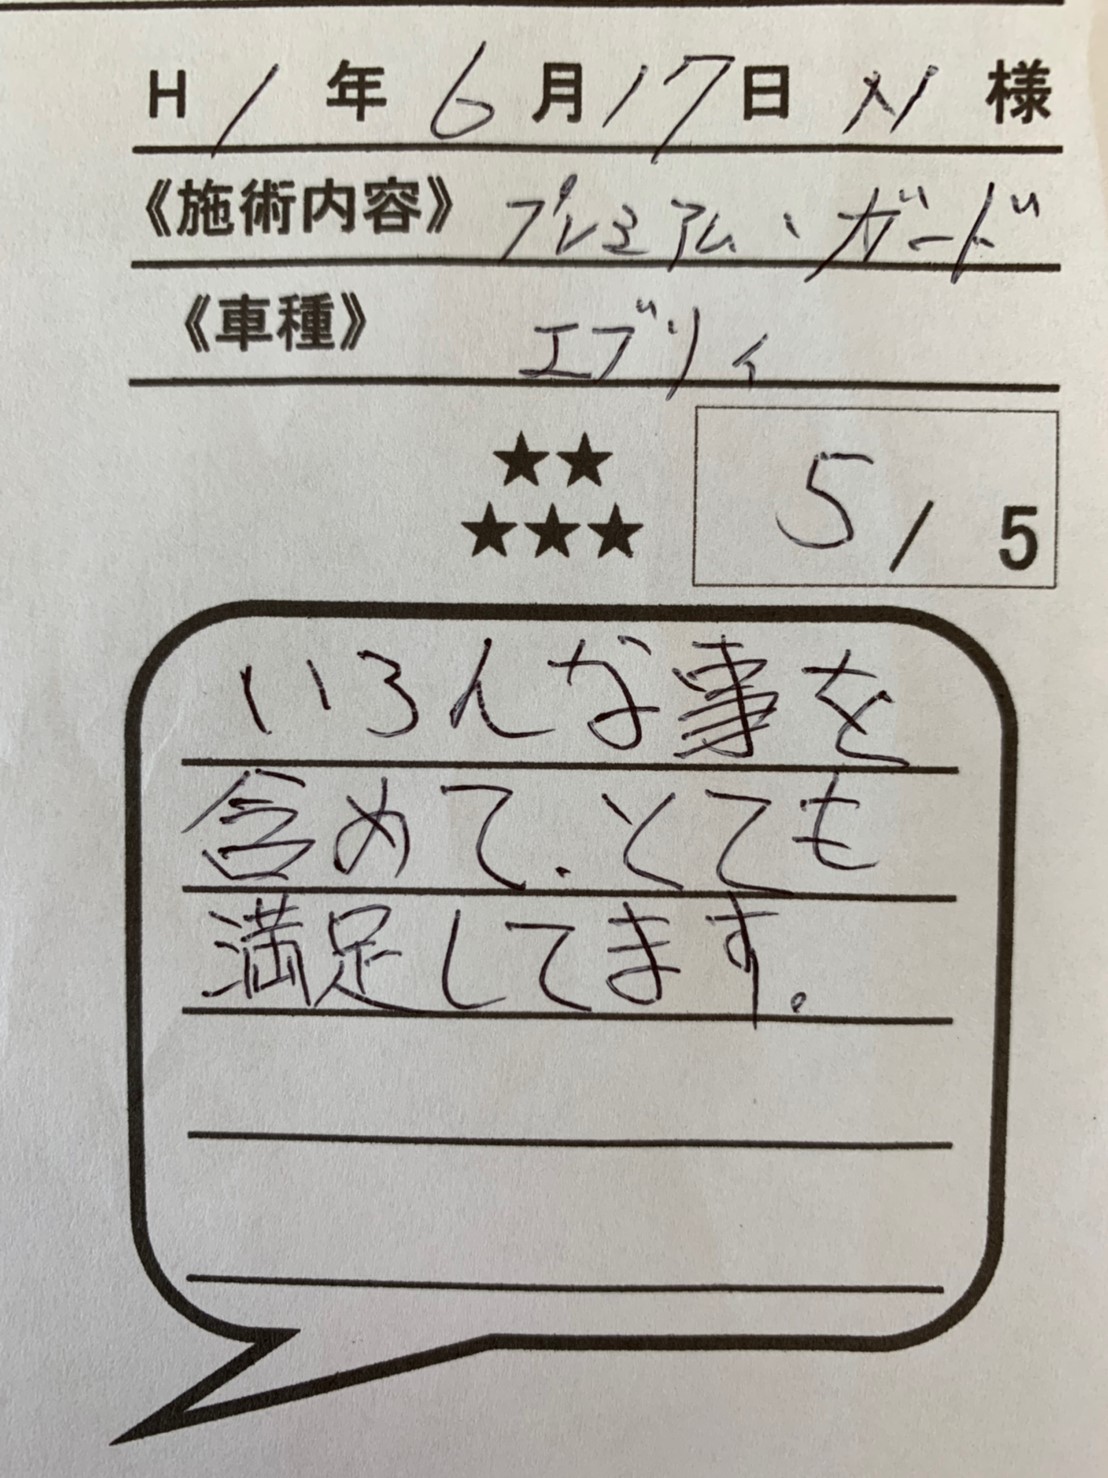 H1年6月17日 N様
《施術内容》 プレミアム、ガード
《車種》 エブリィ
★★
★★★
5/5
いろんな事を
含めて、とても
満足してます。